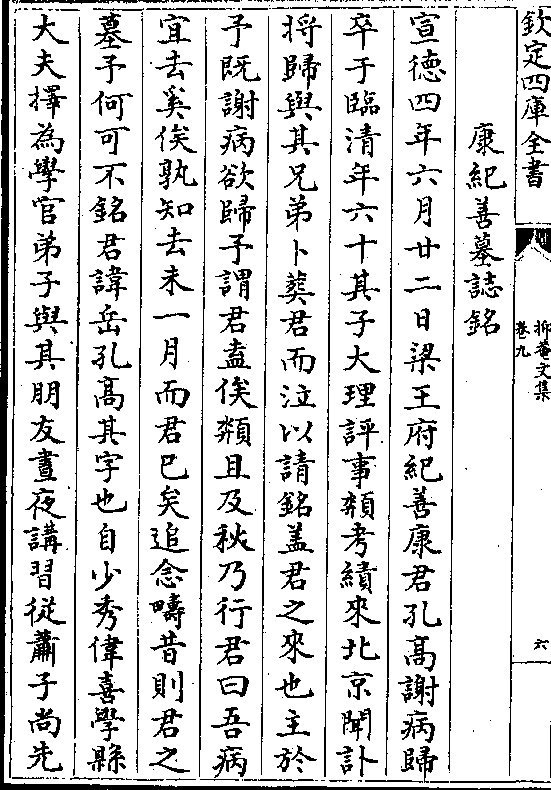 欽定四庫全書
抑菴文集
卷九
六
康紀善墓誌銘
宣德四年六月廿二日梁王府紀善康君孔高謝病歸
卒于臨清年六十其子大理評事頮考績來北京聞訃
將歸與其兄弟卜葬君而泣以請銘蓋君之來也主於
予既謝病欲歸予謂君盍俟頮且及秋乃行君曰吾病
宜去奚俟孰知去未一月而君已矣追念疇昔則君之
墓予何可不銘君諱岳孔高其字也自少秀偉喜學縣
大夫擇為學官弟子與其朋友晝夜講習從蕭子尚先